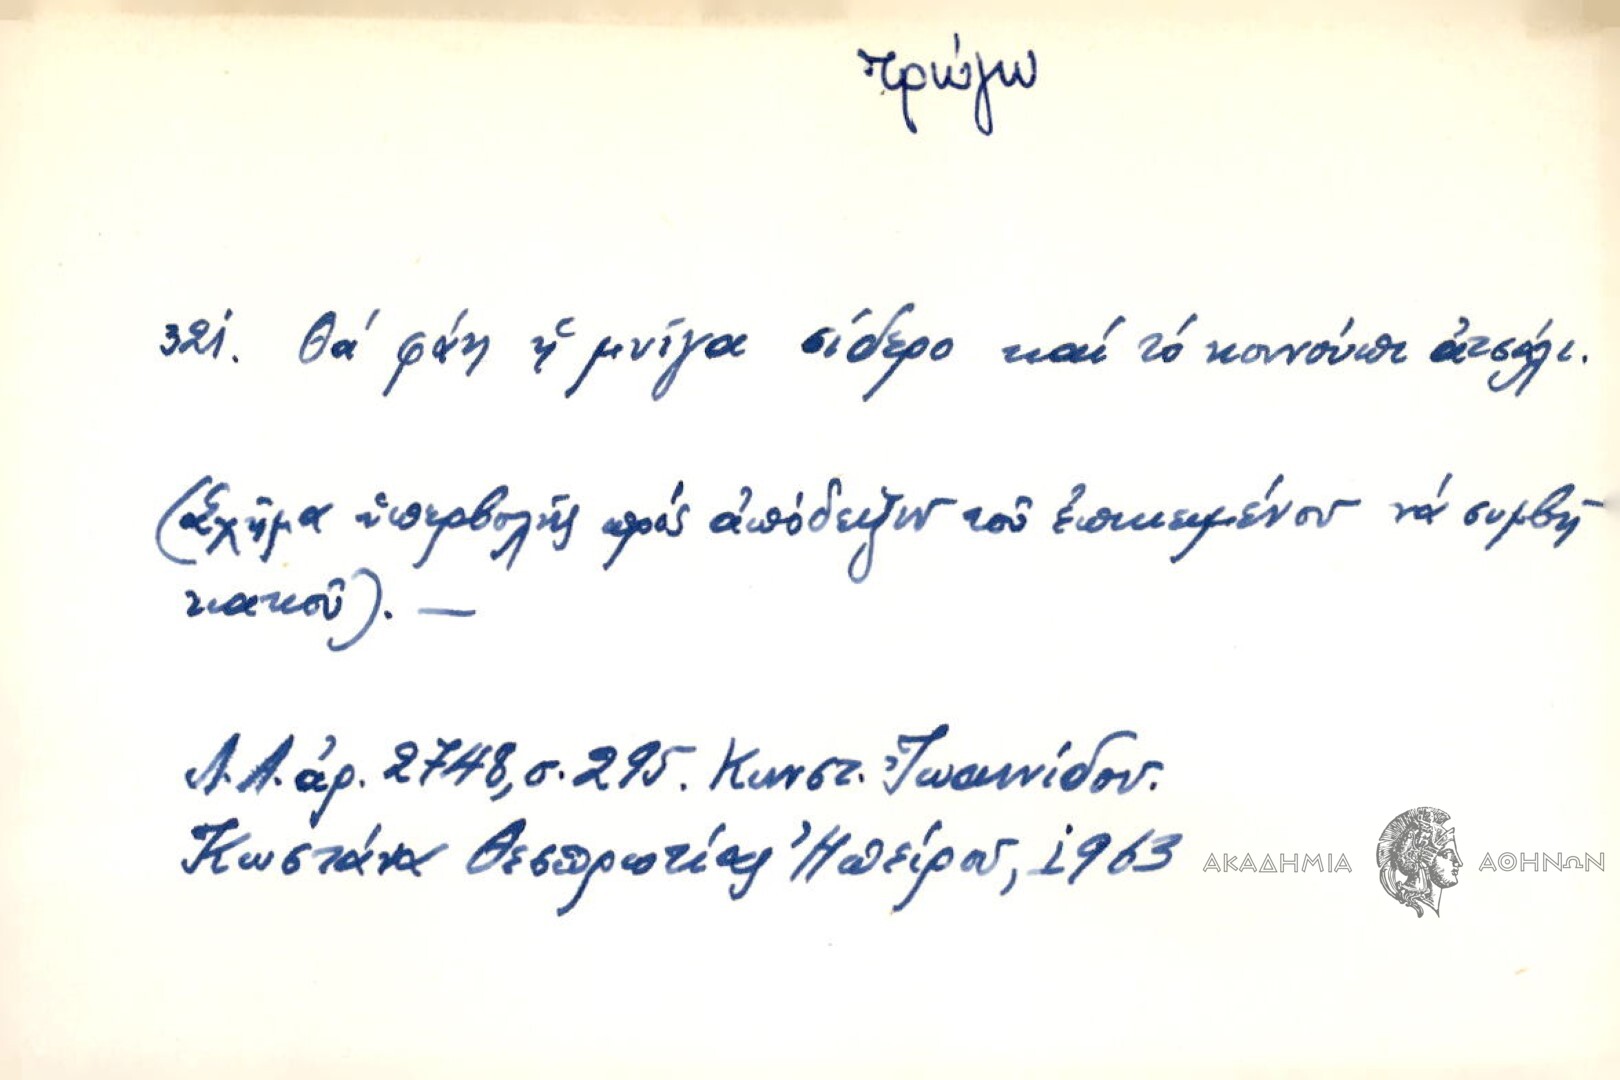 τρώγω
321. Θά φάῃ ἡ μυῖγα σίδερο καί τό κουνούπι ἀτσάλι.
(Σχῆμα ὑπερβολῆς πρός ἀπόδειξιν τοῦ ἐπικειμένου νά συμβῇ
κακοῦ). —
Λ.Α. ἀρ. 2748, σ. 295. Κωνστ. Ἰωαννίδου.
Κωστάνα Θεσπρωτίας Ἠπείρου, 1963
ΑΚΑΔΗΜΙΑ ΑΘΗΝΩΝ